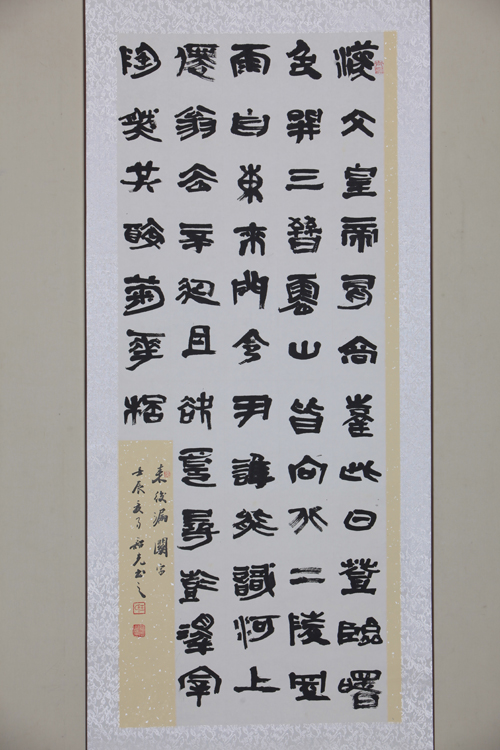 漢文皇帝有高臺此日登臨曙
色開三晉雲山皆向北二陵風
雨自東來門令尹誰能識河上
僊翁去不迴且欲近尋彭澤宰
陶然共醉菊花桮
來後漏關字
壬辰書之